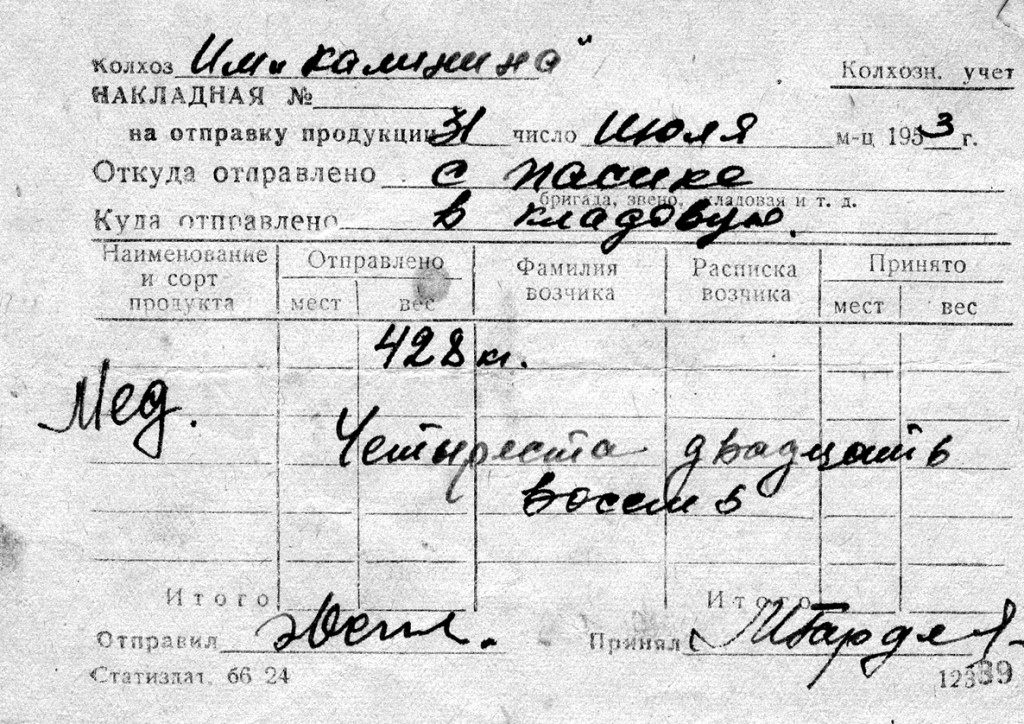 Колхоз Им. Калинина"
Колхозн. учет
НАКЛАДНАЯ №
на отправку продукции 31 число Июля м-ц 1953 г.
Откуда отправлено с пасике
бригада, звено, кладовая и т. д.
Куда отправлено в кладовую.
Наименование и сорт продукта
Отправлено
мест вес
Фамилия возчика
Расписка возчика
Принято
мест вес
428 кг.
Мед.
Четыреста двадцать
восемь
Итого Итого
Отправил Принял
Статиздат. 66 24